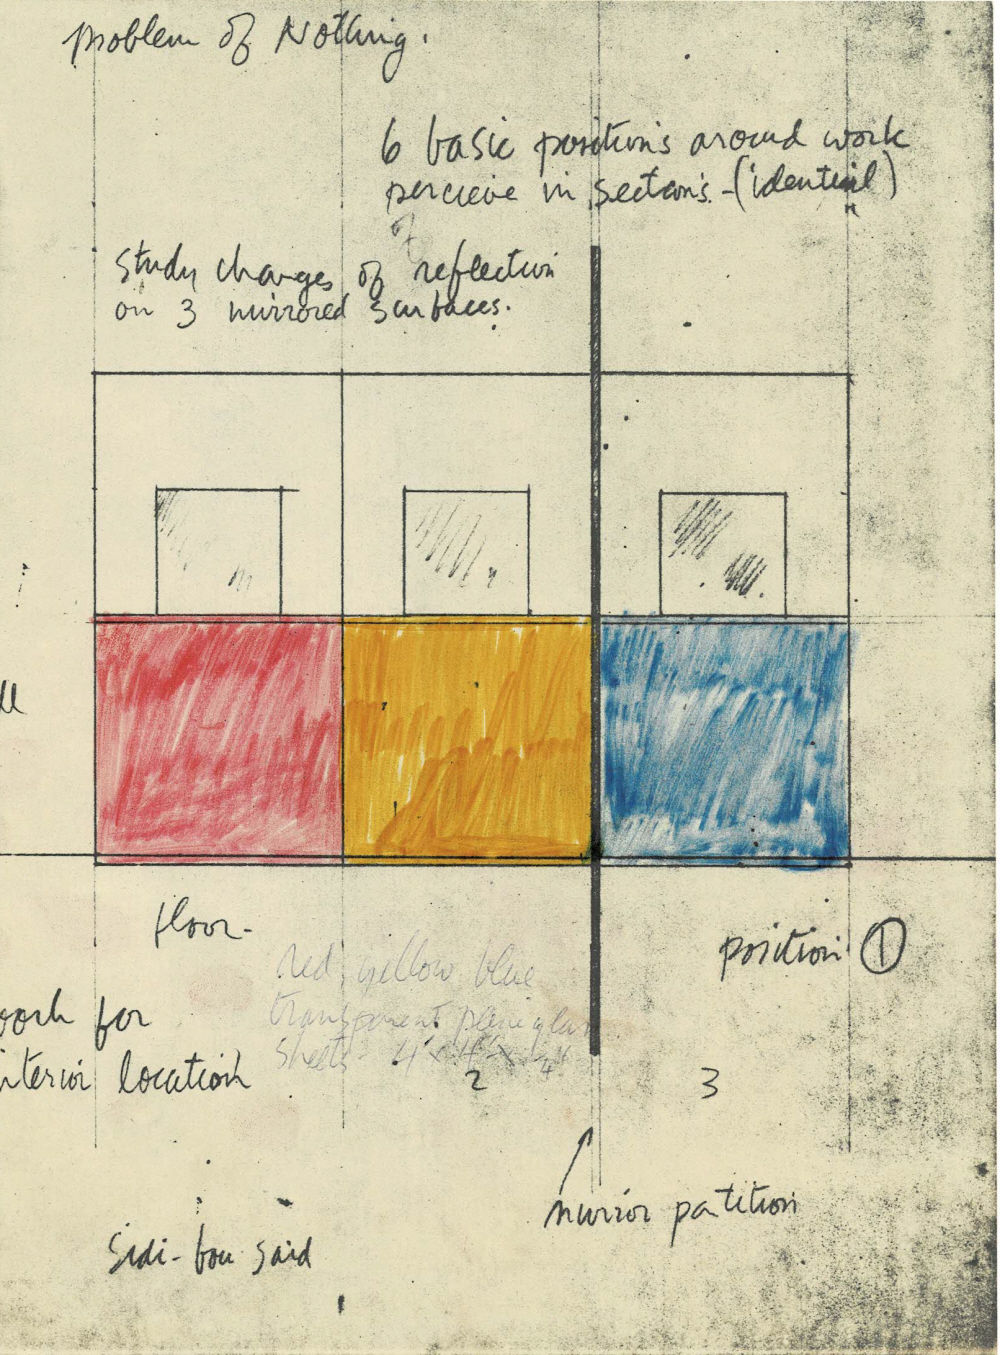 problem of Nothing.
6 basic positions around work
percieve in sections - (identical)
study changes of reflection
on 3 mirrored surfaces.
floor -
position ①
red, yellow blue
transparent plexiglass
sheets - 4' x 4' x ¼"
for
location
2
3
mirror partition
Sidi-bou Said